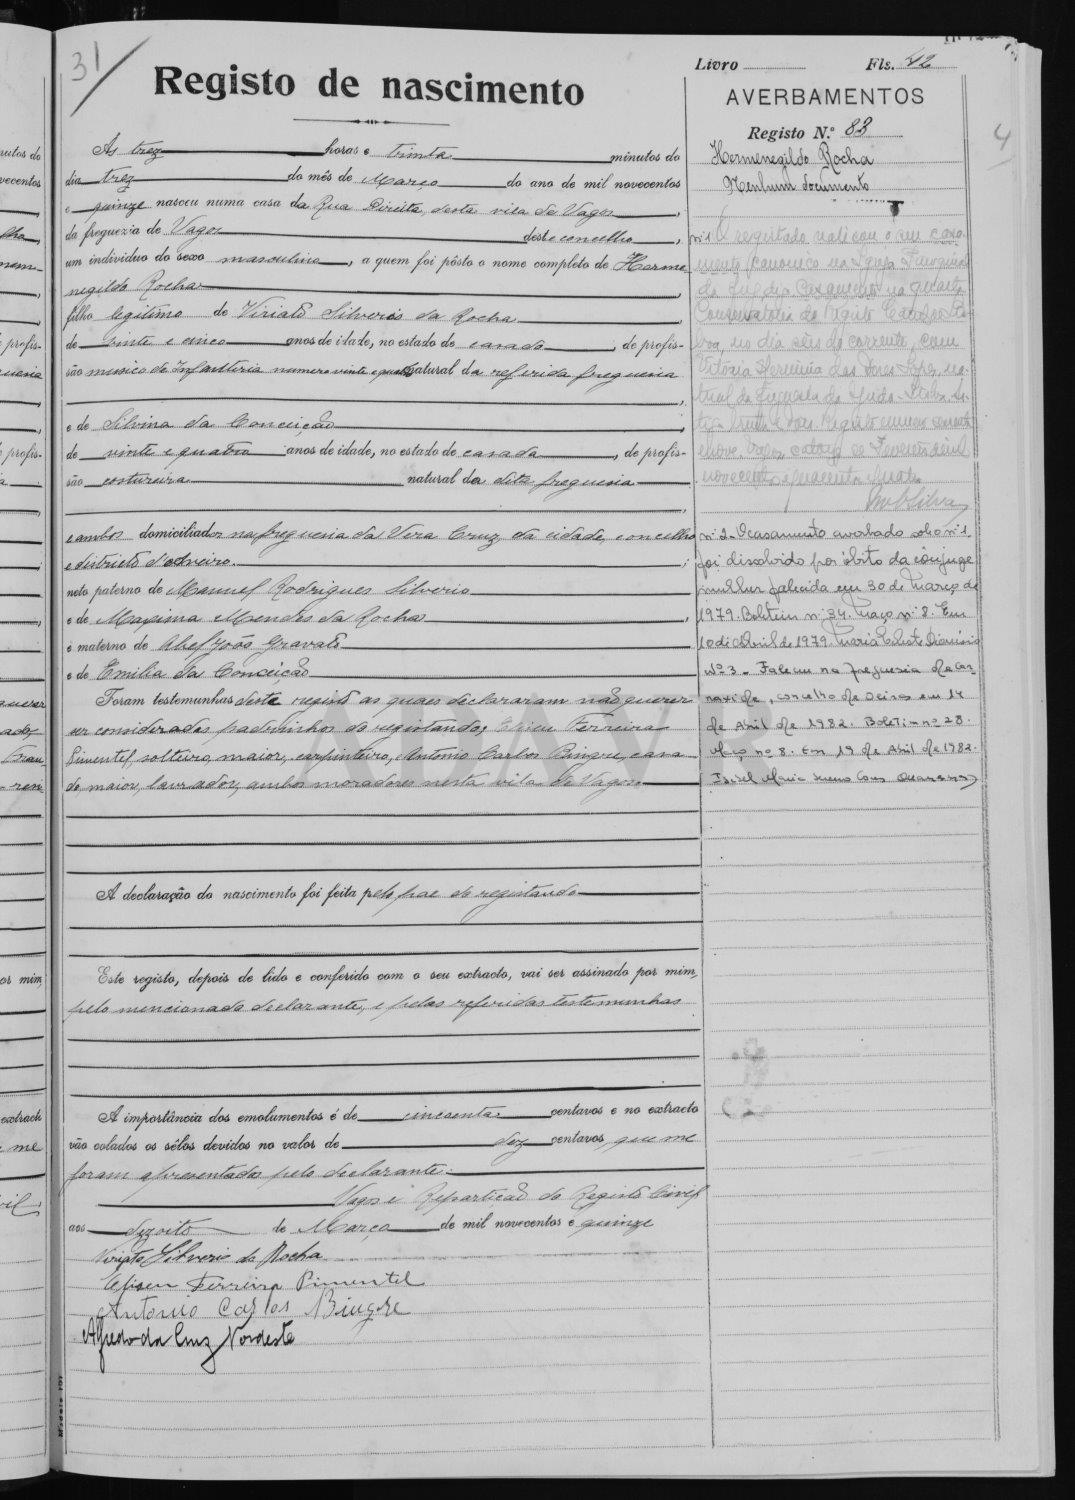 31
Registo de nascimento
Às trez horas e trinta minutos do
dia trez do mês de Março do ano de mil novecentos
e quinze nasceu numa casa da Rua Direita, desta vila de Vagos,
da freguezia de Vagos deste concelho,
um individuo do sexo masculino, a quem foi pôsto o nome completo de Herme
negildo Rocha
filho legitimo de Viriato Silverio da Rocha
de vinte e cinco anos de idade, no estado de casado, de profis-
são musico de Infanteria numero vinte e quatro natural da referida freguesia
e de Silvina da Conceição
de vinte e quatro anos de idade, no estado de casada, de profis-
são costureira natural da dita freguesia
e ambos domiciliados na freguesia da Vera Cruz, da cidade, concelho
e districto d'Aveiro.
neto paterno de Manuel Rodrigues Silverio
e de Maxima Mendes da Rocha
e materno de Abel João Gravato
e de Emilia da Conceição
Foram testemunhas deste registo as quaes declararam não querer
ser considerados padrinhos do registando, Eliseu Ferreira
Pimentel, solteiro, maior, carpinteiro, Antonio Carlos Bingre, casa
do maior, lavrador, ambos moradores nesta vila de Vagos.
A declaração do nascimento foi feita pelo pae do registando
Este registo, depois de lido e conferido com o seu extracto, vai ser assinado por mim,
pelo mencionado declarante, e pelas referidas testemunhas
A importância dos emolumentos é de cincoenta centavos e no extracto
vão colados os sêlos devidos no valor de dez centavos, que me
foram apresentados pelo declarante.
Vagos e Repartição do Registo Civil,
aos dezoito de Março de mil novecentos e quinze
Viriato Silverio da Rocha
Eliseu Ferreira Pimentel
Antonio Carlos Bingre
Alfredo da Cruz Nordeste
Livro Fls. 42
AVERBAMENTOS
Registo N.º 83
Hermenegildo Rocha
Nenhum documento
nº 1 O registado realisou o seu casa-
mento canonico na Igreja Paroquial
da na quarta
Conservatoria do Registo Civil de Lis-
boa, no dia seis do corrente, com
Vitoria Herminia das Dores Lopes, na-
tural da freguesia da Ajuda - Lisboa.
Vagos, catorze de Fevereiro de mil
novecentos e quarenta e quatro
nº 2 - O casamento averbado sob o nº 1
foi dissolvido por óbito da cônjuge
mulher falecida em 30 de Março de
1979. Boletim nº 34, maço nº 8. Em
10 de Abril de 1979.
Nº 3 - Faleceu na freguesia de Car-
naxide, concelho de Oeiras em 14
de Abril de 1982. Boletim nº 28.
Maço nº 8. Em 19 de Abril de 1982.
4